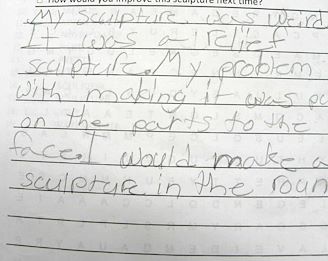 How would you improve this sculpture next time?
My sculpture was weird
It was a relief
sculpture. My problem
with making it was pu
on the parts to the
face. I would make a
sculpture in the roun